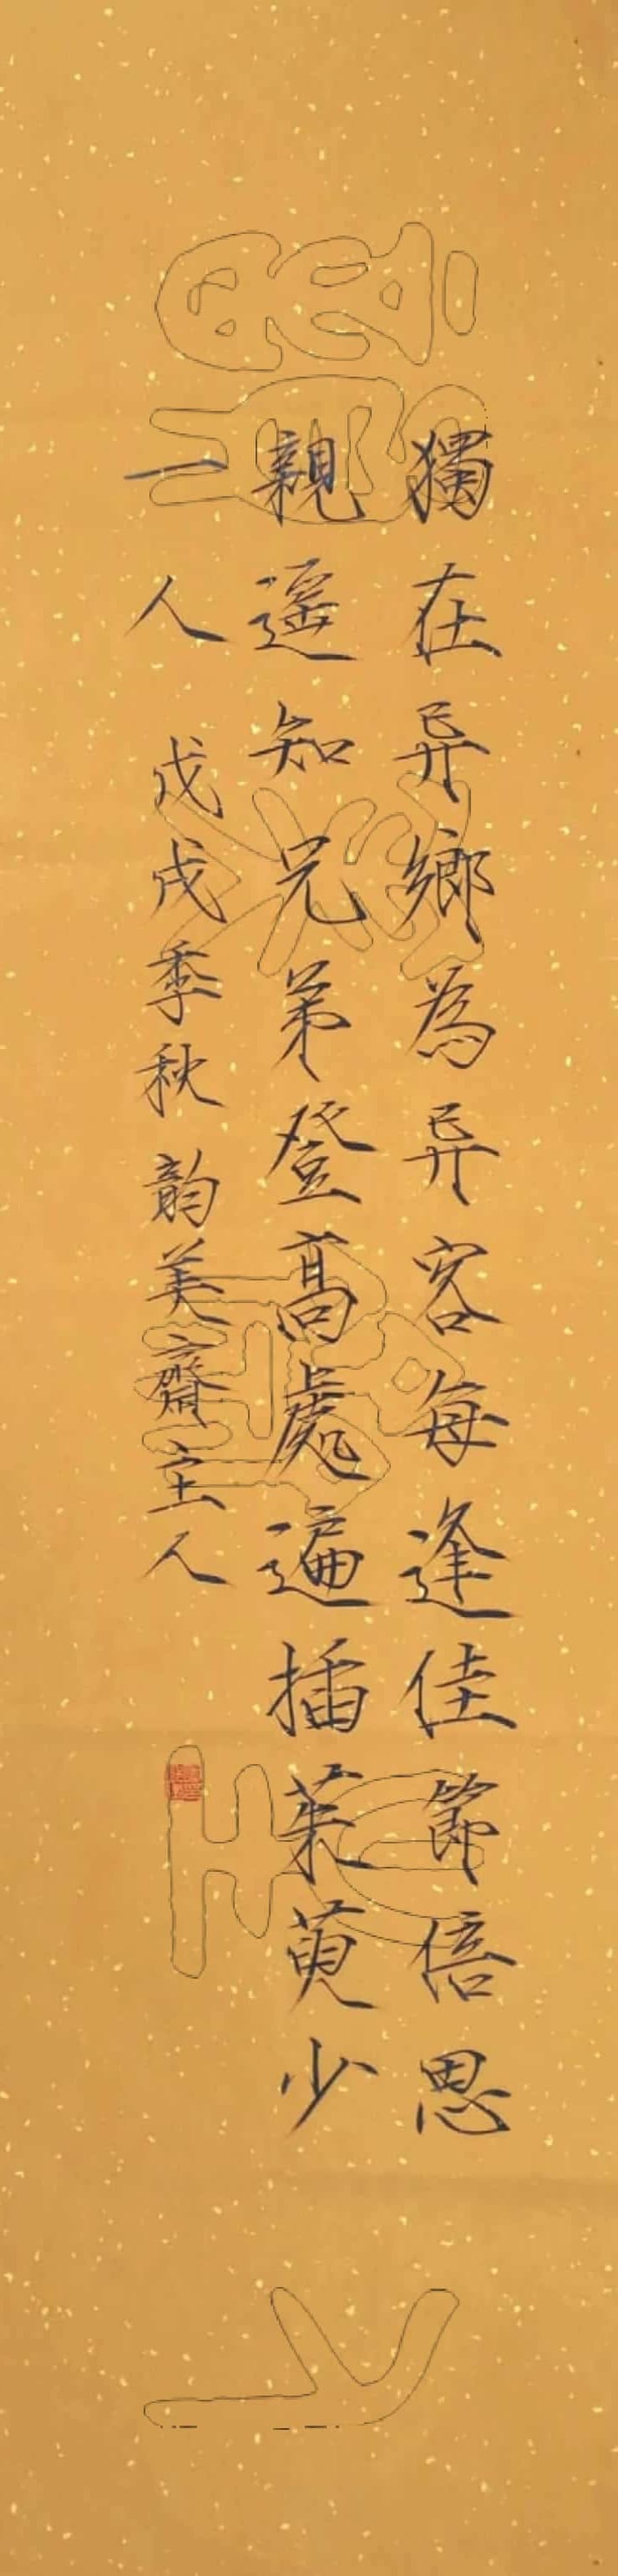 獨在异鄉為异客每逢佳節倍思
親遥知兄弟登高處遍插茱萸少
一人 戊戌季秋 韵美齋主人